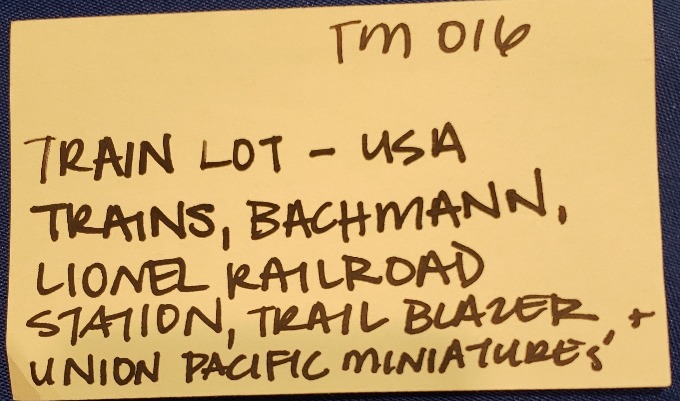 TM 016
TRAIN LOT - USA
TRAINS, BACHMANN,
LIONEL RAILROAD
STATION, TRAIL BLAZER, +
UNION PACIFIC MINIATURES